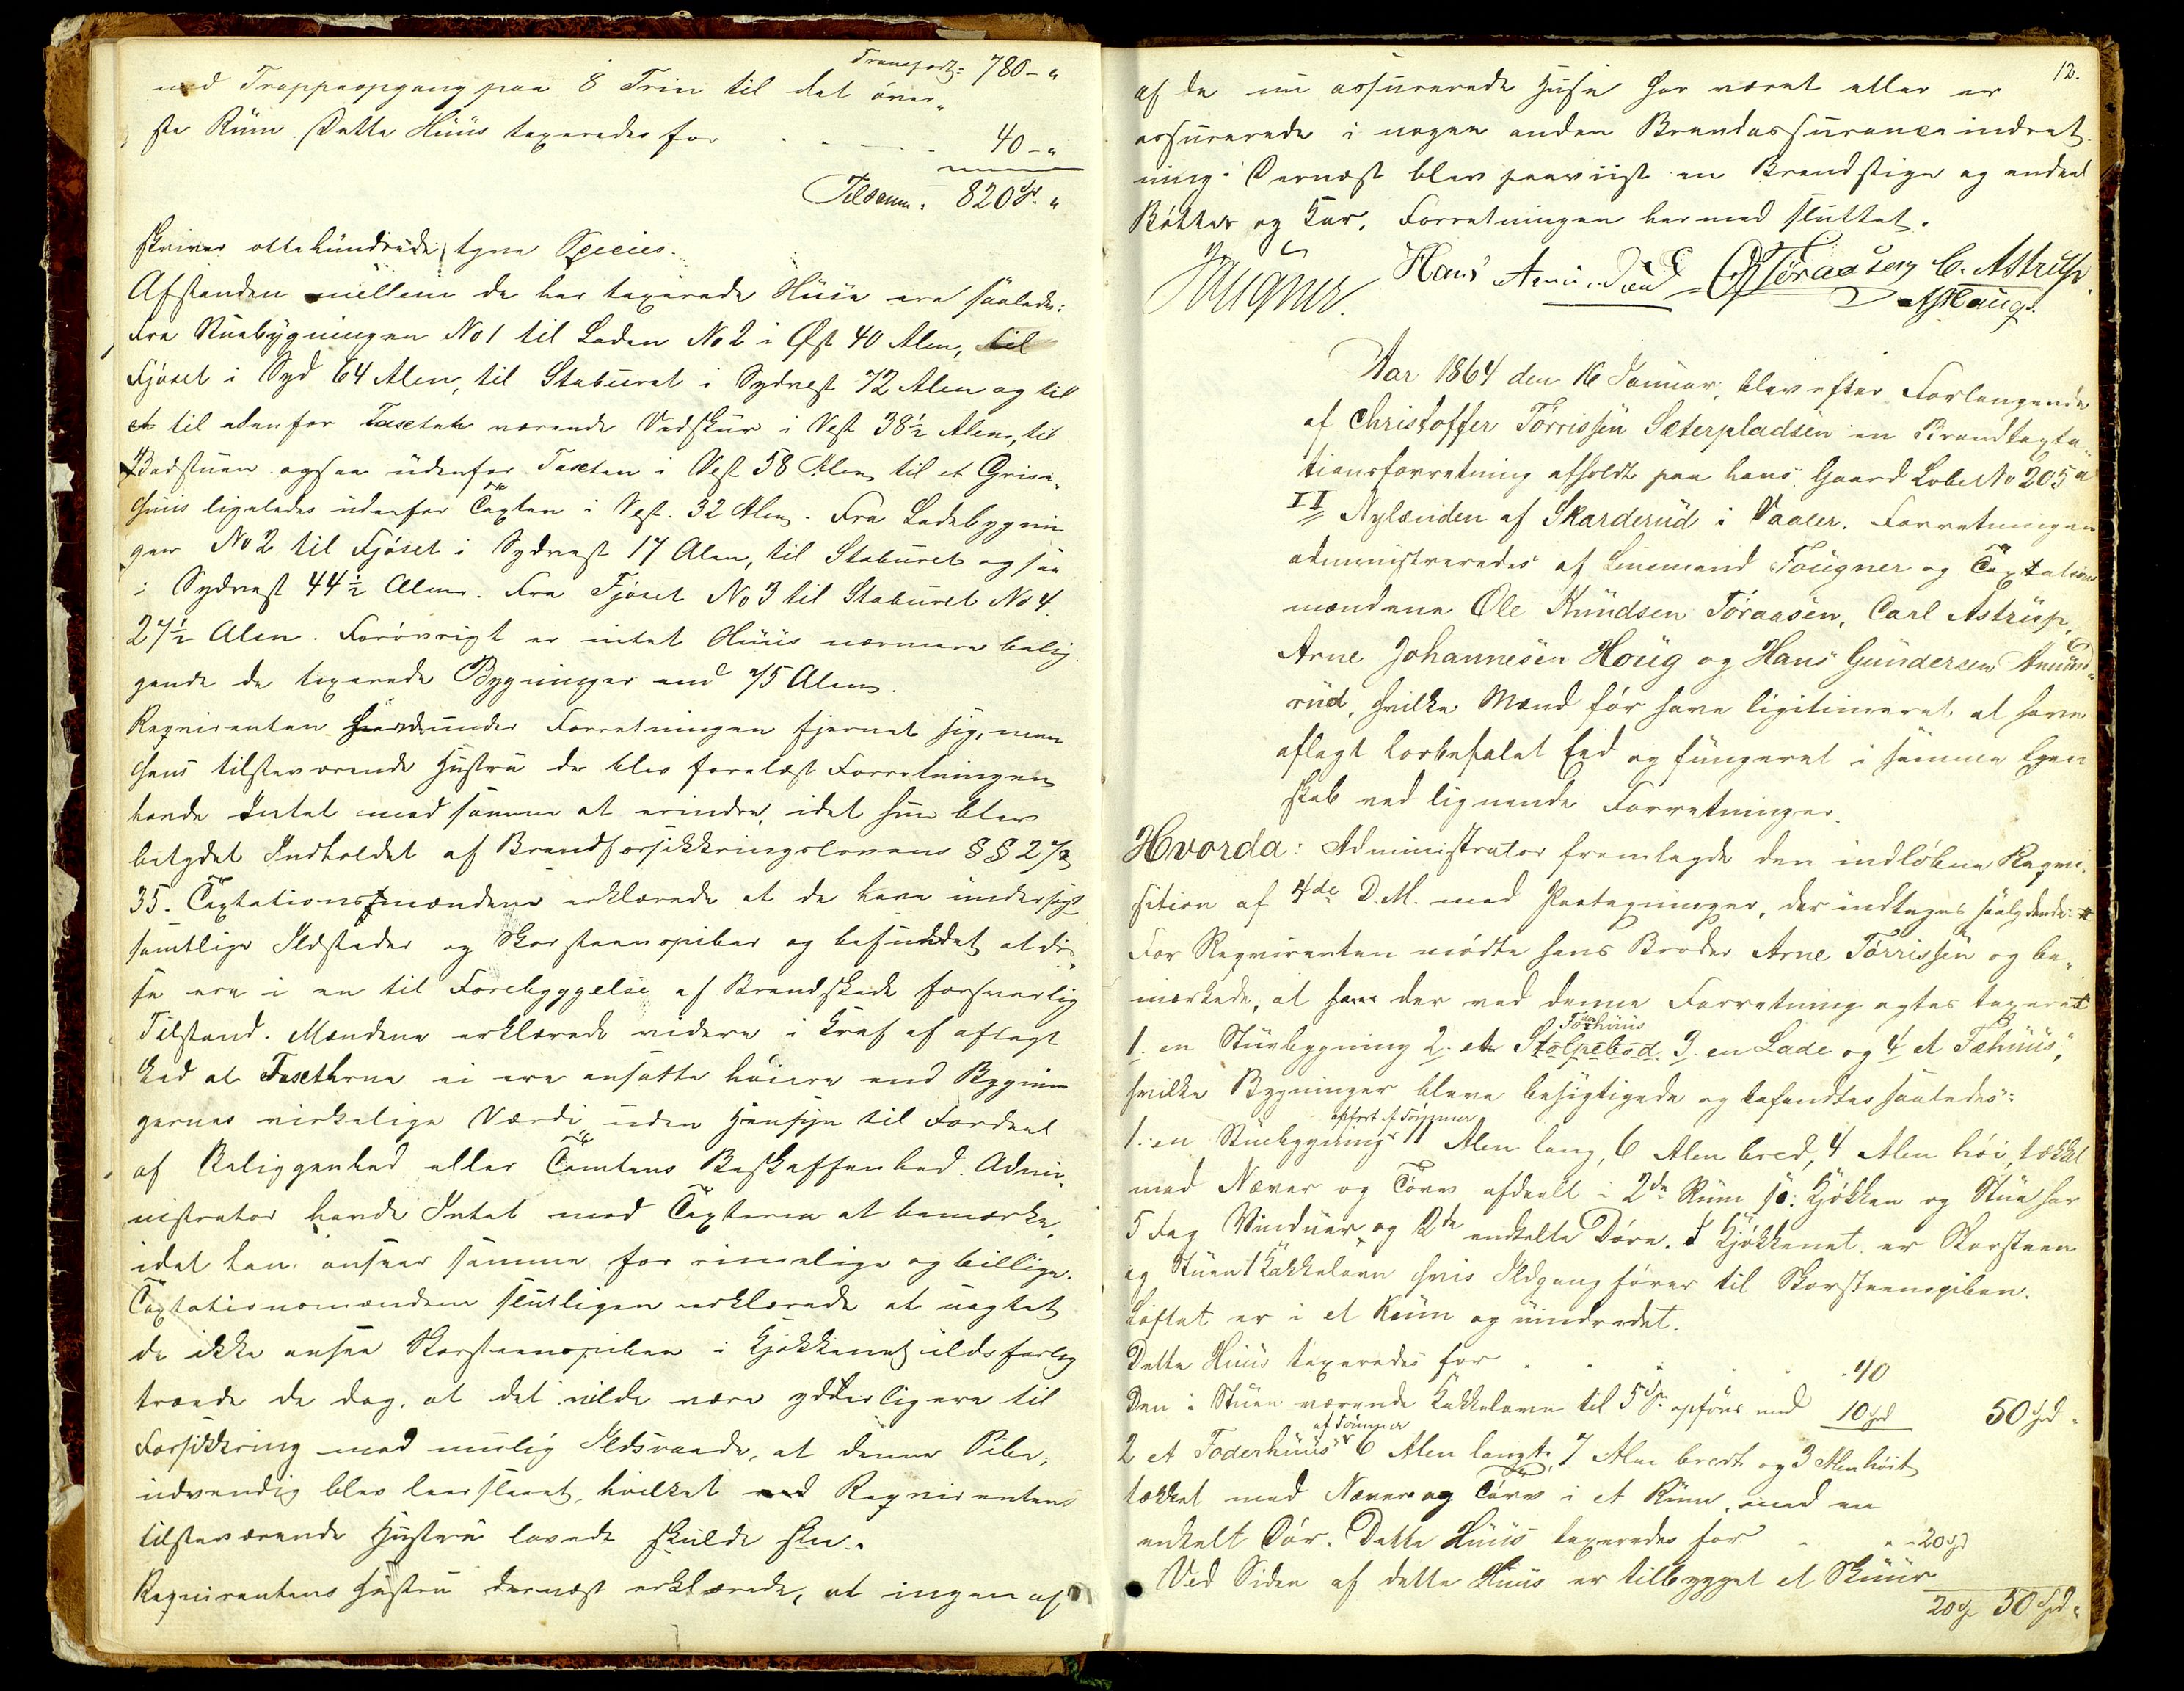 Transport= 780-"
med Trappeopgang paa 8 Trin til det øver-
ste Rüm. Dette Hüüs taxeredes for - - - - 40-"
Tilsamm: 820 Sp. "
skriver ottehündrede, tyve Species.
Afstanden mellem de her taxerede Hüse ere saaledes:
Fra Stuebygningen No 1 til Laden No 2 i Øst 40 Alen, til
Fjøset i Syd 64 Alen, til Stabüret i Sydvest 72 Alen og til
et til udenfor Taxten værende Vedskür i Vest 38½ Alen, til
Badstuen ogsaa üdenfor Taxten i Vest 58 Alen til et Grise-
hüüs ligeledes udenfor Taxten i Vest. 32 Alen. Fra Ladebygnin
gen No 2 til Fjøset i Sydvest 17 Alen, til Stabüret ogsaa
i Sydvest 44½ Alen. Fra Fjøset No 3 til Stabüret No 4.
27½ Alen. Forøvrigt er intet Hüüs nærmere belig-
gende de taxerede Bygninger end 75 Alen.
Reqvirenten under Forretningen fjernet sig, men
hans tilstedeværende Hustrü da blev forelæst Forretningen
havde Intet mod samme at erindre, idet hun blev
betydet Indholdet af Brandforsikkringslovens §§ 27 &
35. Taxtationsmændene erklærede at de have undersøgt
samtlige Ildsteder og Skorsteenspiber og befundet at dis-
se ere i en til Forebyggelse af Brandskade forsvarlig
Tilstand. Mændene erklærede videre i Kraft af aflagt
Eed at Taxterne ei ere ansatte høiere end Bygnin
gernes virkelige Værdi uden Hensyn til Fordeel
af Beliggenhed eller Tomtens Beskaffenhed. Admi-
nistrator havde Intet mod Taxterne at bemærke,
idet han ansaae samme for rimelige og billige.
Taxtationsmændene slutligen erklærede at uagtet
de ikke ansee Skorsteenspiben i Kjøkkenet ildsfarlig
troede de dog, at det vilde være ydderligere til
Forsikkring mod mulig Ildsvaade, at denne Pibe,
udvendig blev leerslaaet, hvilket Reqvirentens
tilstedeværende Hustru lovede skulde skee.
Reqvirentens Hustru dernæst erklærede, at ingen af
12.
af de nu assurerede Huse har været eller er
assurerede i nogen anden Brandassuranceindret-
ning. Dernæst blev paaviist en Brandstige og endeel
Bøtter og Kar. Forretningen hermed sluttet.
Fougner. Hans Amundrud OKTøraasen C. Astrup.
AJHoug.
Aar 1864 den 16 Januar, blev efter Forlangende
af Christoffer Tørrissen Sæterpladsen en Brandtaxta-
tionsforretning afholdt paa hans Gaard Løbe No 205a
II Nylænden af Skarderüd i Vaaler. Forretningen
administreredes af Lensmand Foügner og Taxtations
mændene Ole Knüdsen Tøraasen, Carl Astrüp,
Arne Johannesen Hoüg og Hans Gündersen Amünd-
rüd, hvilke Mænd før have ligitimeret at have
aflagt Lovbefalet Eed og füngeret i samme Egen
skab ved lignende Forretninger.
Hvorda: Administrator fremlagde den indløbne Reqvi-
sition af 4de D.M. med Paategninger, der indtages saalydende:
For Reqvirenten mødte hans Broder Arne Tørrissen og be-
mærkede, at der ved denne Forretning agtes taxeret
1. en Stüebygning 2. et Stolpebod Foderhüüs 3. en Lade og 4 et Fæhüüs,
hvilke Bygninger bleve besigtigede og befandtes saaledes:
1. en Stüebygning opført af Tømmer 11 Alen lang, 6 Alen bred, 4 Alen høi, tækket
med Næver og Tørv afdeelt i 2de Rüm ɔ: Kjøkken og Stüe har
5 Fag Vindüer og 2de enkelte Døre. I Kjøkkenet er Skorsteen
og Stüen 1 Kakkelovn hvis Ildgang fører til Skorsteenspiben.
Loftet er i et Rüm og üindredet.
Dette Hüüs taxeredes for . . . . . 40
Den i Stüen værende Kakkelovn til 5 Sp. opføres med 10 Spd 50 Spd.
2 et Foderhüüs af Tømmer 6 Alen langt, 7 Alen bredt og 3 Alen høit
tækket med Næver og Tørv i et Rüm, med en
enkelt Dør. Dette Hüüs taxeredes for - - - 20 Spd
Ved Siden af dette Hüüs er tilbygget et Sküür
20 Sp 50 Spd.